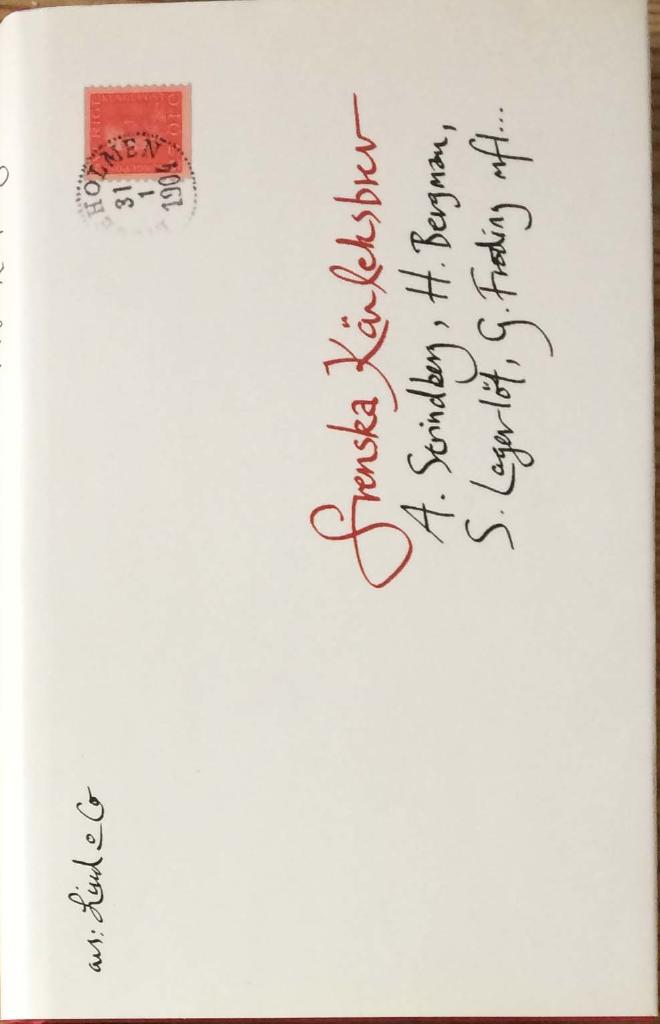 avs: Lind & Co
HOLMEN
31
1
1904
Svenska Kärleksbrev
A. Strindberg, H. Bergman,
S. Lagerlöf, G. Fröding mfl...